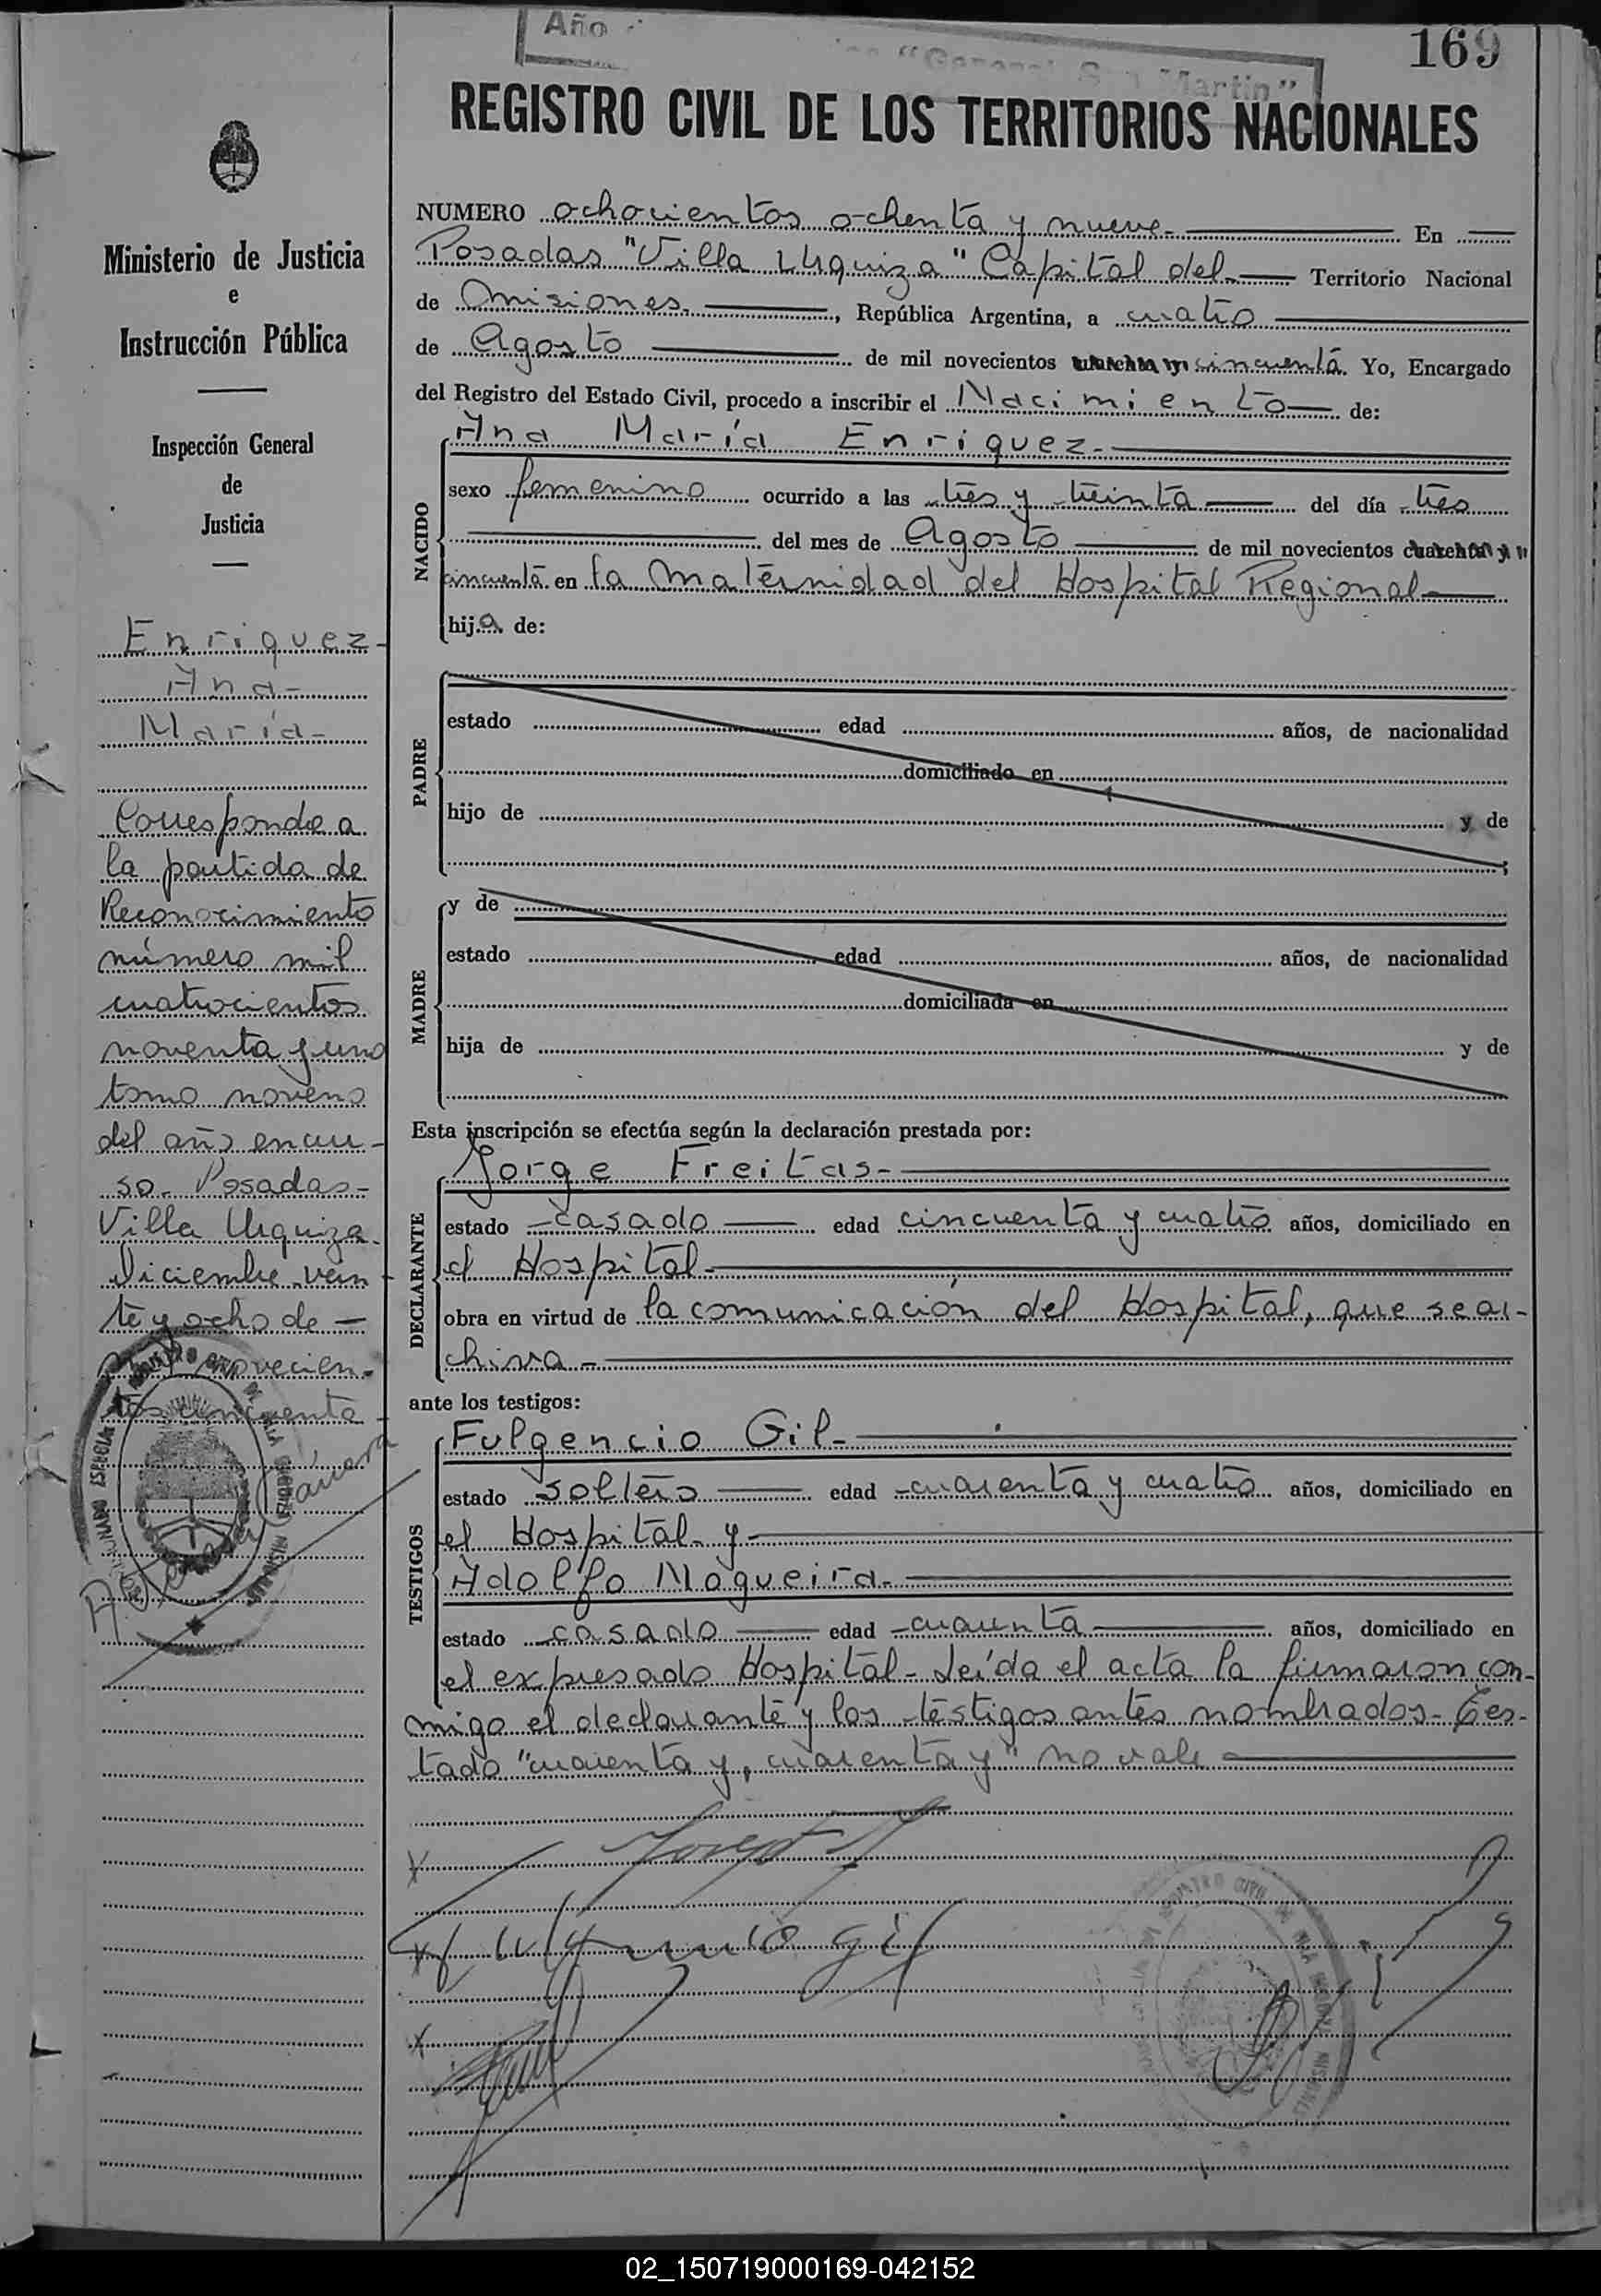 Año
"General San Martín"
169
REGISTRO CIVIL DE LOS TERRITORIOS NACIONALES
Ministerio de Justicia
e
Instrucción Pública
Inspección General
de
Justicia
Enriquez-
Ana-
María-
Corresponde a
la partida de
Reconocimiento
número mil
cuatrocientos
noventa y uno
tomo noveno
del año en cur-
so. Posadas-
Villa Urquiza.
Diciembre vein-
te y ocho de —
mil novecien-
tos cincuenta-
NUMERO ochocientos ochenta y nueve. En
Posadas "Villa Urquiza" Capital del Territorio Nacional
de Misiones. , República Argentina, a cuatro
de Agosto de mil novecientos cuarenta y cincuenta. Yo, Encargado
del Registro del Estado Civil, procedo a inscribir el Nacimiento de:
NACIDO
Ana María Enriquez.
sexo femenino ocurrido a las tres y treinta del día tres
del mes de Agosto de mil novecientos cuarenta y
cincuenta en la Maternidad del Hospital Regional
hija de:
PADRE
estado edad años, de nacionalidad
domiciliado en
hijo de y de
;
MADRE
y de
estado edad años, de nacionalidad
domiciliada en
hija de y de
Esta inscripción se efectúa según la declaración prestada por:
DECLARANTE
Jorge Freitas-
estado casado edad cincuenta y cuatro años, domiciliado en
el Hospital-
obra en virtud de la comunicación del Hospital, que se ar-
chiva-
ante los testigos:
TESTIGOS
Fulgencio Gil-
estado soltero edad cuarenta y cuatro años, domiciliado en
el Hospital y-
Adolfo Mogueira-
estado casado edad cuarenta años, domiciliado en
el expresado Hospital- Leída el acta la firmaron con-
migo el declarante y los testigos antes nombrados- Tes-
tado "cuarenta y, cuarenta y" no vale
02_150719000169-042152